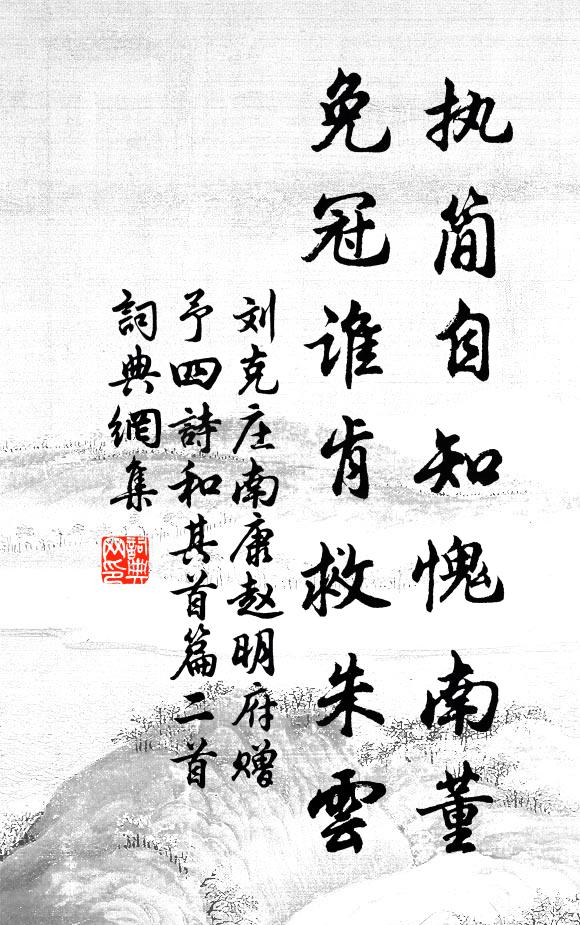 执简自知愧南董
免冠谁肯救朱雲
刘克庄南康赵明府赠
予四詩和其首篇二首
詞典網集
詞典网印